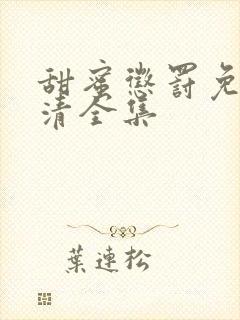 甜蜜懲罰免
清全集
葉連松